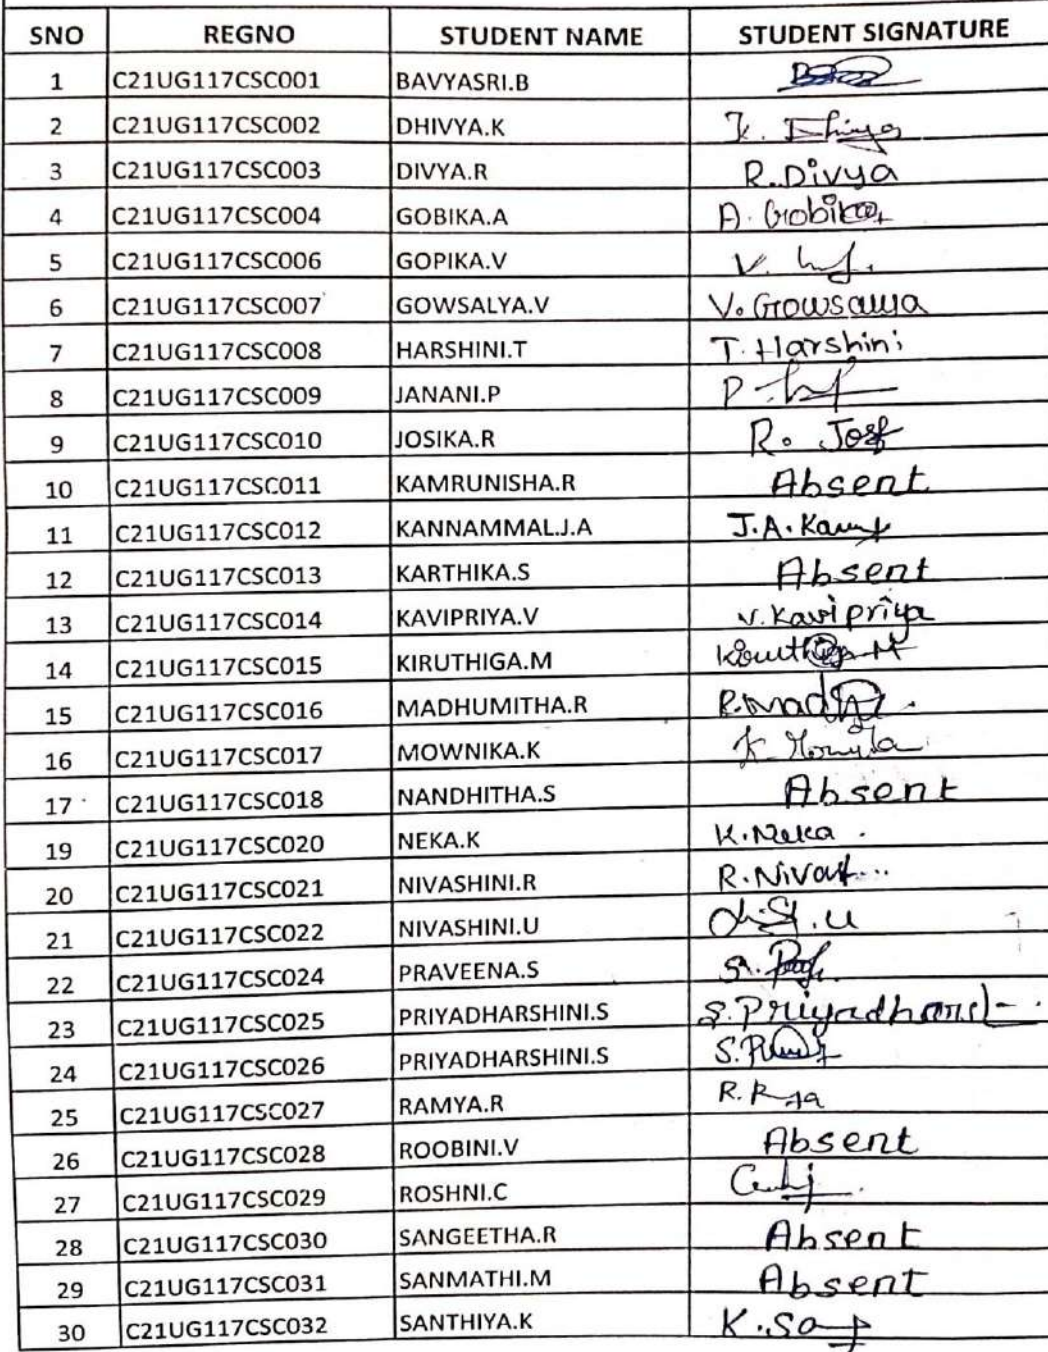 SNO REGNO STUDENT NAME STUDENT SIGNATURE
1 C21UG117CSC001 BAVYASRI.B
2 C21UG117CSC002 DHIVYA.K K. Dhivya
3 C21UG117CSC003 DIVYA.R R.Divya
4 C21UG117CSC004 GOBIKA.A A. Gobika
5 C21UG117CSC006 GOPIKA.V V.
6 C21UG117CSC007 GOWSALYA.V V. Gowsalya
7 C21UG117CSC008 HARSHINI.T T. Harshini
8 C21UG117CSC009 JANANI.P P
9 C21UG117CSC010 JOSIKA.R R.
10 C21UG117CSC011 KAMRUNISHA.R Absent
11 C21UG117CSC012 KANNAMMAL.J.A J.A.
12 C21UG117CSC013 KARTHIKA.S Absent
13 C21UG117CSC014 KAVIPRIYA.V V. Kavipriya
14 C21UG117CSC015 KIRUTHIGA.M
15 C21UG117CSC016 MADHUMITHA.R
16 C21UG117CSC017 MOWNIKA.K K.
17 C21UG117CSC018 NANDHITHA.S Absent
19 C21UG117CSC020 NEKA.K K. Neka
20 C21UG117CSC021 NIVASHINI.R R.
21 C21UG117CSC022 NIVASHINI.U
22 C21UG117CSC024 PRAVEENA.S
23 C21UG117CSC025 PRIYADHARSHINI.S
24 C21UG117CSC026 PRIYADHARSHINI.S
25 C21UG117CSC027 RAMYA.R R.
26 C21UG117CSC028 ROOBINI.V Absent
27 C21UG117CSC029 ROSHNI.C
28 C21UG117CSC030 SANGEETHA.R Absent
29 C21UG117CSC031 SANMATHI.M Absent
30 C21UG117CSC032 SANTHIYA.K K.